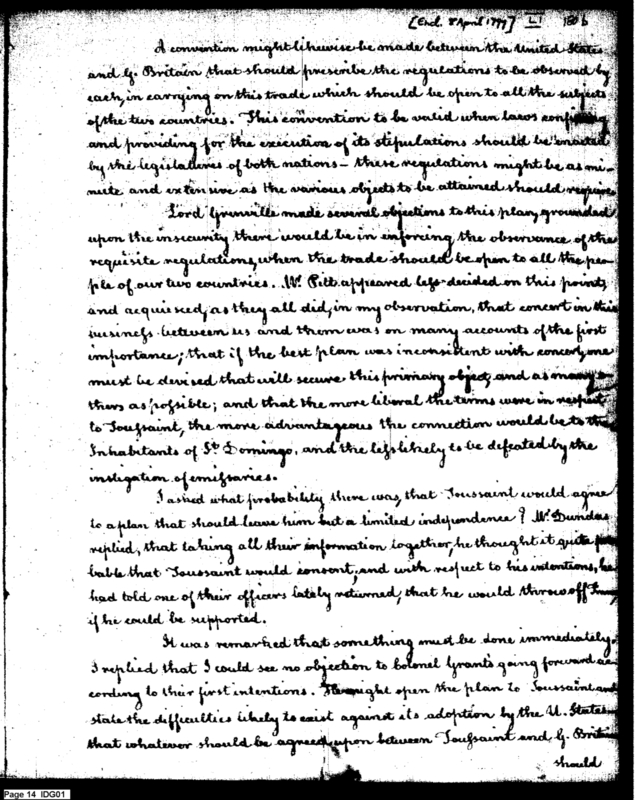 [Encl. 8 April 1799] LI 186
A convention might likewise be made between the United States
and G. Britain that should prescribe the regulations to be observed by
each, in carrying on this trade which should be open to all the subjects
of the two countries. This convention to be valid when laws confirming
and providing for the execution of its stipulations should be enacted
by the legislatures of both nations – these regulations might be as mi-
nute and extensive as the various objects to be attained should require
Lord Grenville made several objections to this plan, grounded
upon the insecurity there would be in enforcing the observance of the
requisite regulations, when the trade should be open to all the peo-
ple of our two countries. Mr. Pitt appeared less decided on this point,
and acquiesced, as they all did, in my observation, that concert in this
business between us and them was on many accounts of the first
importance; that if the best plan was inconsistent with concert, one
must be devised that will secure this primary object, and as many o-
thers as possible; and that the more liberal the terms were in respect
to Toussaint, the more advantageous the connection would be to the
Inhabitants of St. Domingo, and the less likely to be defeated by the
instigation of emissaries.
I asked what probability there was, that Toussaint would agree
to a plan that should leave him but a limited independence? Mr. Dundas
replied, that taking all their information together, he thought it quite pro
bable that Toussaint would consent, and with respect to his intentions, he
had told one of their officers lately returned, that he would throw off France
if he could be supported.
It was remarked that something must be done immediately.
I replied that I could see no objection to Colonel Grant's going forward ac-
cording to their first intentions. He might open the plan to Toussaint and
state the difficulties likely to exist against its adoption by the U. States
that whatever should be agreed upon between Toussaint and G. Britain
should
Page 14 IDG01